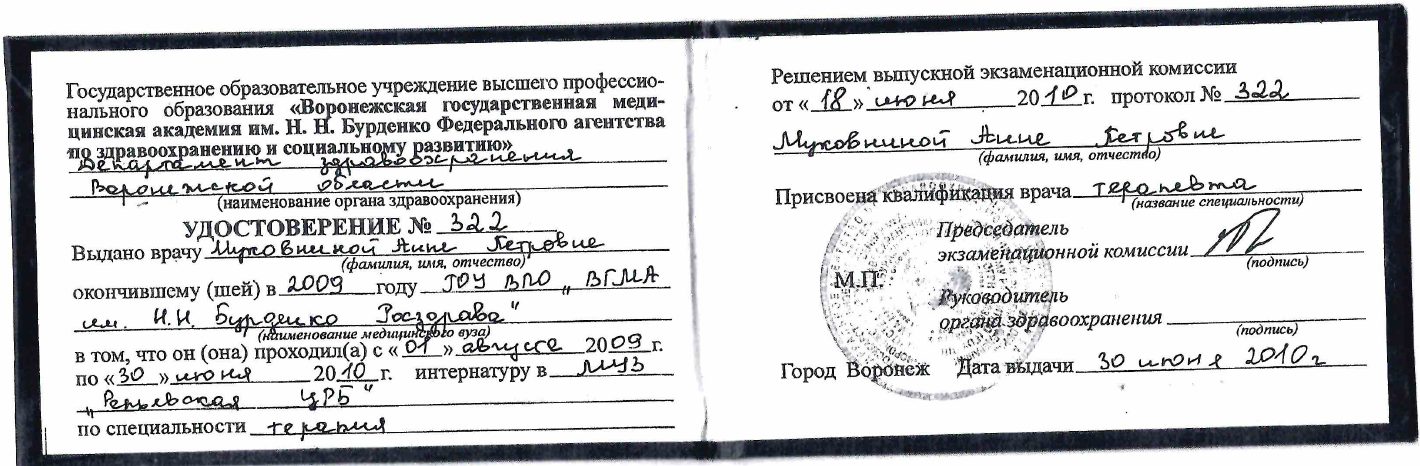 Государственное образовательное учреждение высшего профессио-
нального образования «Воронежская государственная меди-
цинская академия им. Н. Н. Бурденко Федерального агентства
по здравоохранению и социальному развитию»
Департамент здравоохранения
Воронежской области
(наименование органа здравоохранения)
УДОСТОВЕРЕНИЕ № 322
Выдано врачу Муковниной Анне Петровне
(фамилия, имя, отчество)
окончившему (шей) в 2009 году ГОУ ВПО „ВГМА
им. Н.Н. Бурденко Росздрава"
(наименование медицинского вуза)
в том, что он (она) проходил(а) с «01» августа 2009 г.
по «30» июня 2010 г. интернатуру в МУЗ
„Репьевская ЦРБ"
по специальности терапия
Решением выпускной экзаменационной комиссии
от «18» июня 2010 г. протокол № 322
Муковниной Анне Петровне
(фамилия, имя, отчество)
Присвоена квалификация врача терапевта
(название специальности)
Председатель
экзаменационной комиссии
(подпись)
М.П.
Руководитель
органа здравоохранения
(подпись)
Город Воронеж Дата выдачи 30 июня 2010г